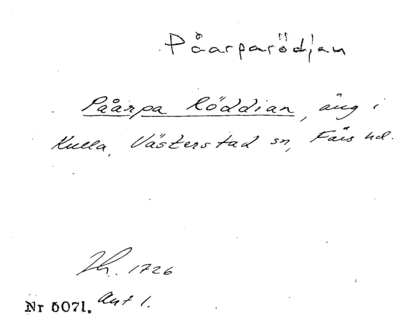 Påarparödjan
Påarpa Röddian, äng i
Kulla, Västerstad sn, Färs hd.
Lh. 1726
Ant 1.
Nr 5071.